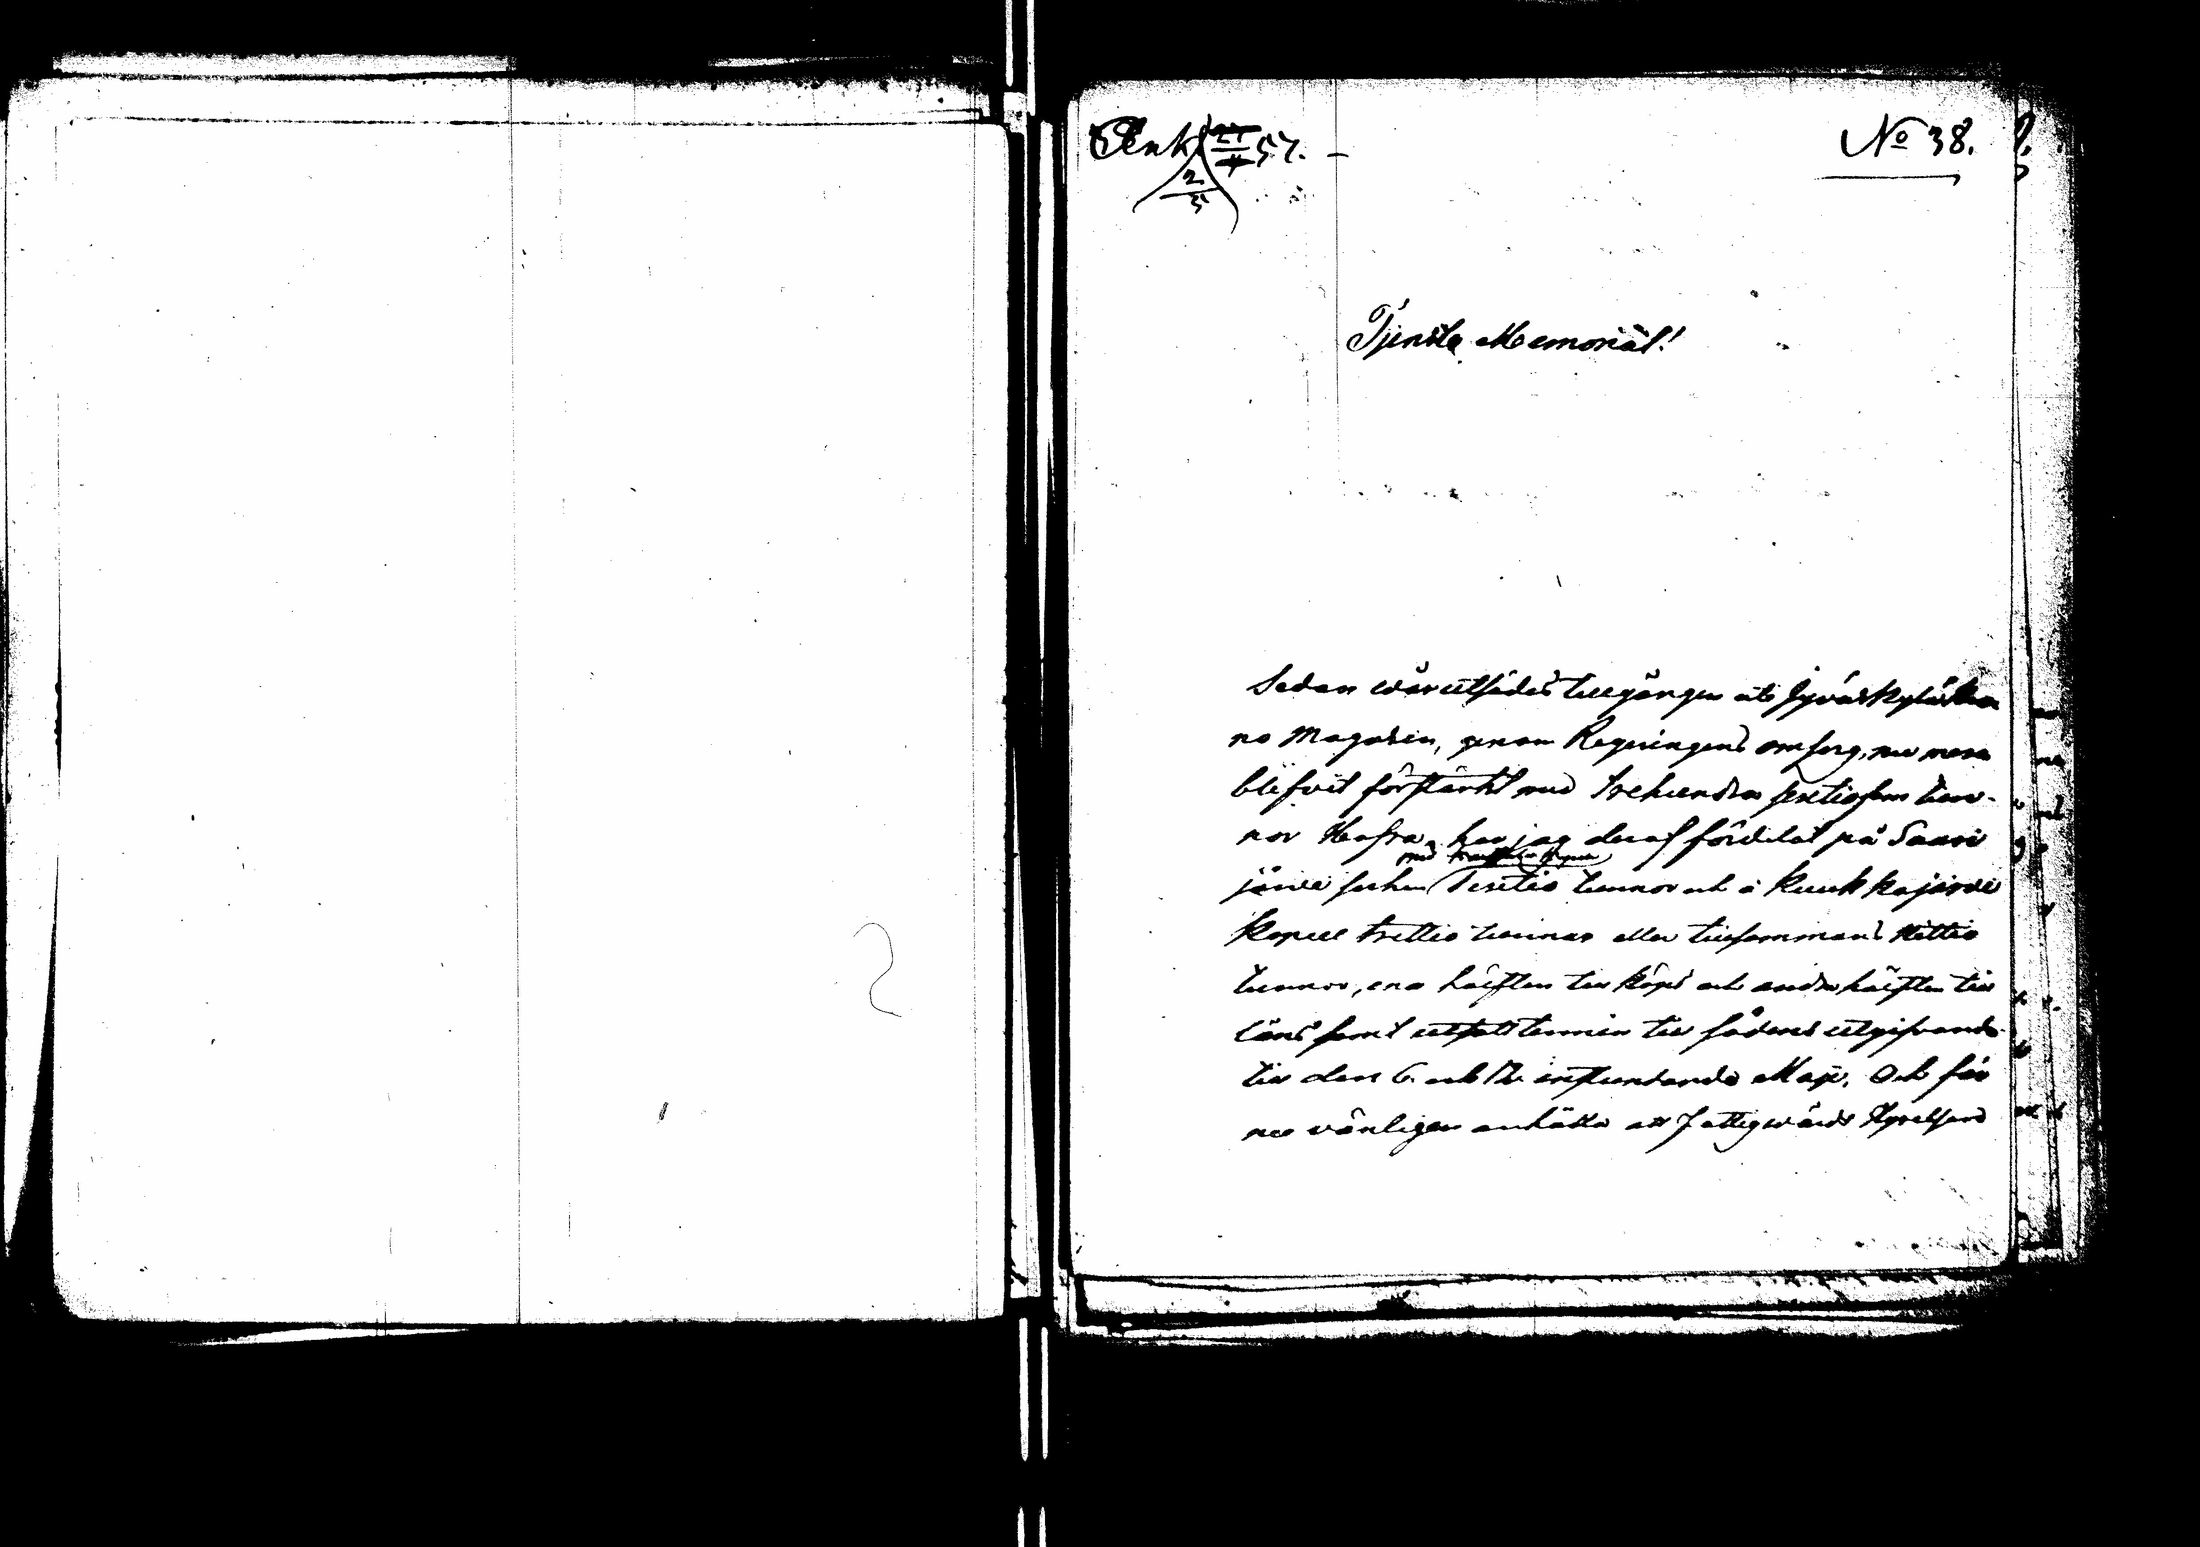 Ank 27/4 57. –
2/5
No 38.
Tjenste Memorial!
Sedan wårutsädes tillgången uti Jyväskylä Kro
no Magasin, genom Regeringens omsorg, nu mera
blifvit förstärkt med trehundra sextiofem tun-
nor Hafra, har jag deraf fördelat på Saari
med
järvi socken Sextio tunnor och å Kuukkajärvi
Kapell trettio tunnor eller tillsammans Nittio
tunnor, ena hälften till köps och andra hälften till
låns samt utsatt termin till sådens utgifvande
till den 6 och 12 instundande Maji, Och får
nu vänligen anhålla att Fattigwårds Styrelsens